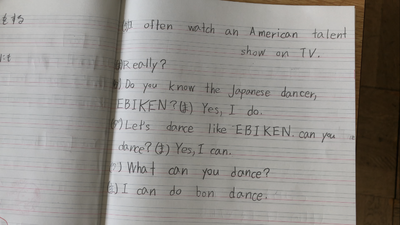 often watch an American talent
show on TV.
Really?
Do you know the Japanese dancer,
EBIKEN? (ま) Yes, I do.
Let's dance like EBIKEN. can you
dance? (ま) Yes, I can.
What can you dance?
I can do bon dance.